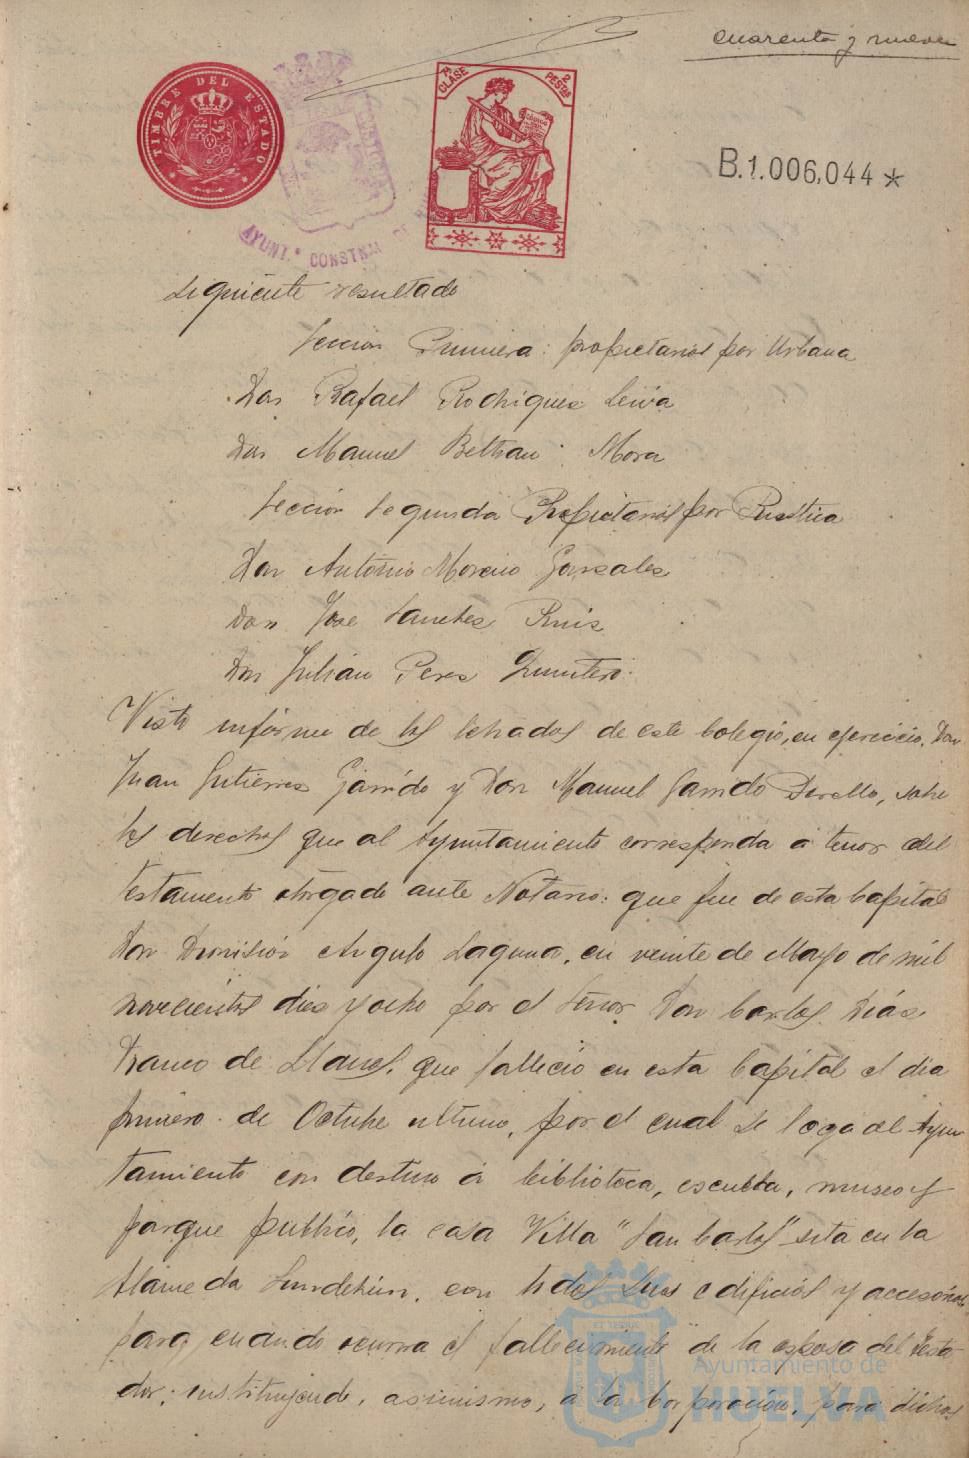 cuarenta y nueve
TIMBRE DEL ESTADO
7ª CLASE 2 PESTAS
B.1.006,044 *
AYUNT.º CONSTNAL DE
siguiente resultado
Seccion Primera: propietarios por Urbana
Don Rafael Rodrigues Leiva
Don Manuel Beltran Mora
Seccion Segunda Propietarios por Rustica
Don Antonio Moreno Gonsales
Don Jose Sanches Ruis
Don Julián Peres Quintero.
Visto informe de los letrados de este Colegio, en ejercicio, Don
Juan Gutierres Garrido y Don Manuel Garrido Perello, sobre
los derechos que al Ayuntamiento corresponda á tenor del
testamento otorgado ante Notario: que fue de esta Capital
Don Dionisio Angulo Laguna, en veinte de Mayo de mil
novecientos dies y ocho por el Señor Don Carlos Dias
Franco de Llanos, que fallecio en esta Capital el dia
primero de Octubre ultimo, por el cual se lega al Ayun
tamiento con destino á biblioteca, escuela, museo y
parque publico, la casa Villa "San Carlos" sita en la
Alameda Sundehin, con todos sus edificios y accesorios
para cuando ocurra el fallecimiento de la esposa del testa
dor; instituyendo, asimismo, á la Corporacion, para dichos
Ayuntamiento de
HUELVA